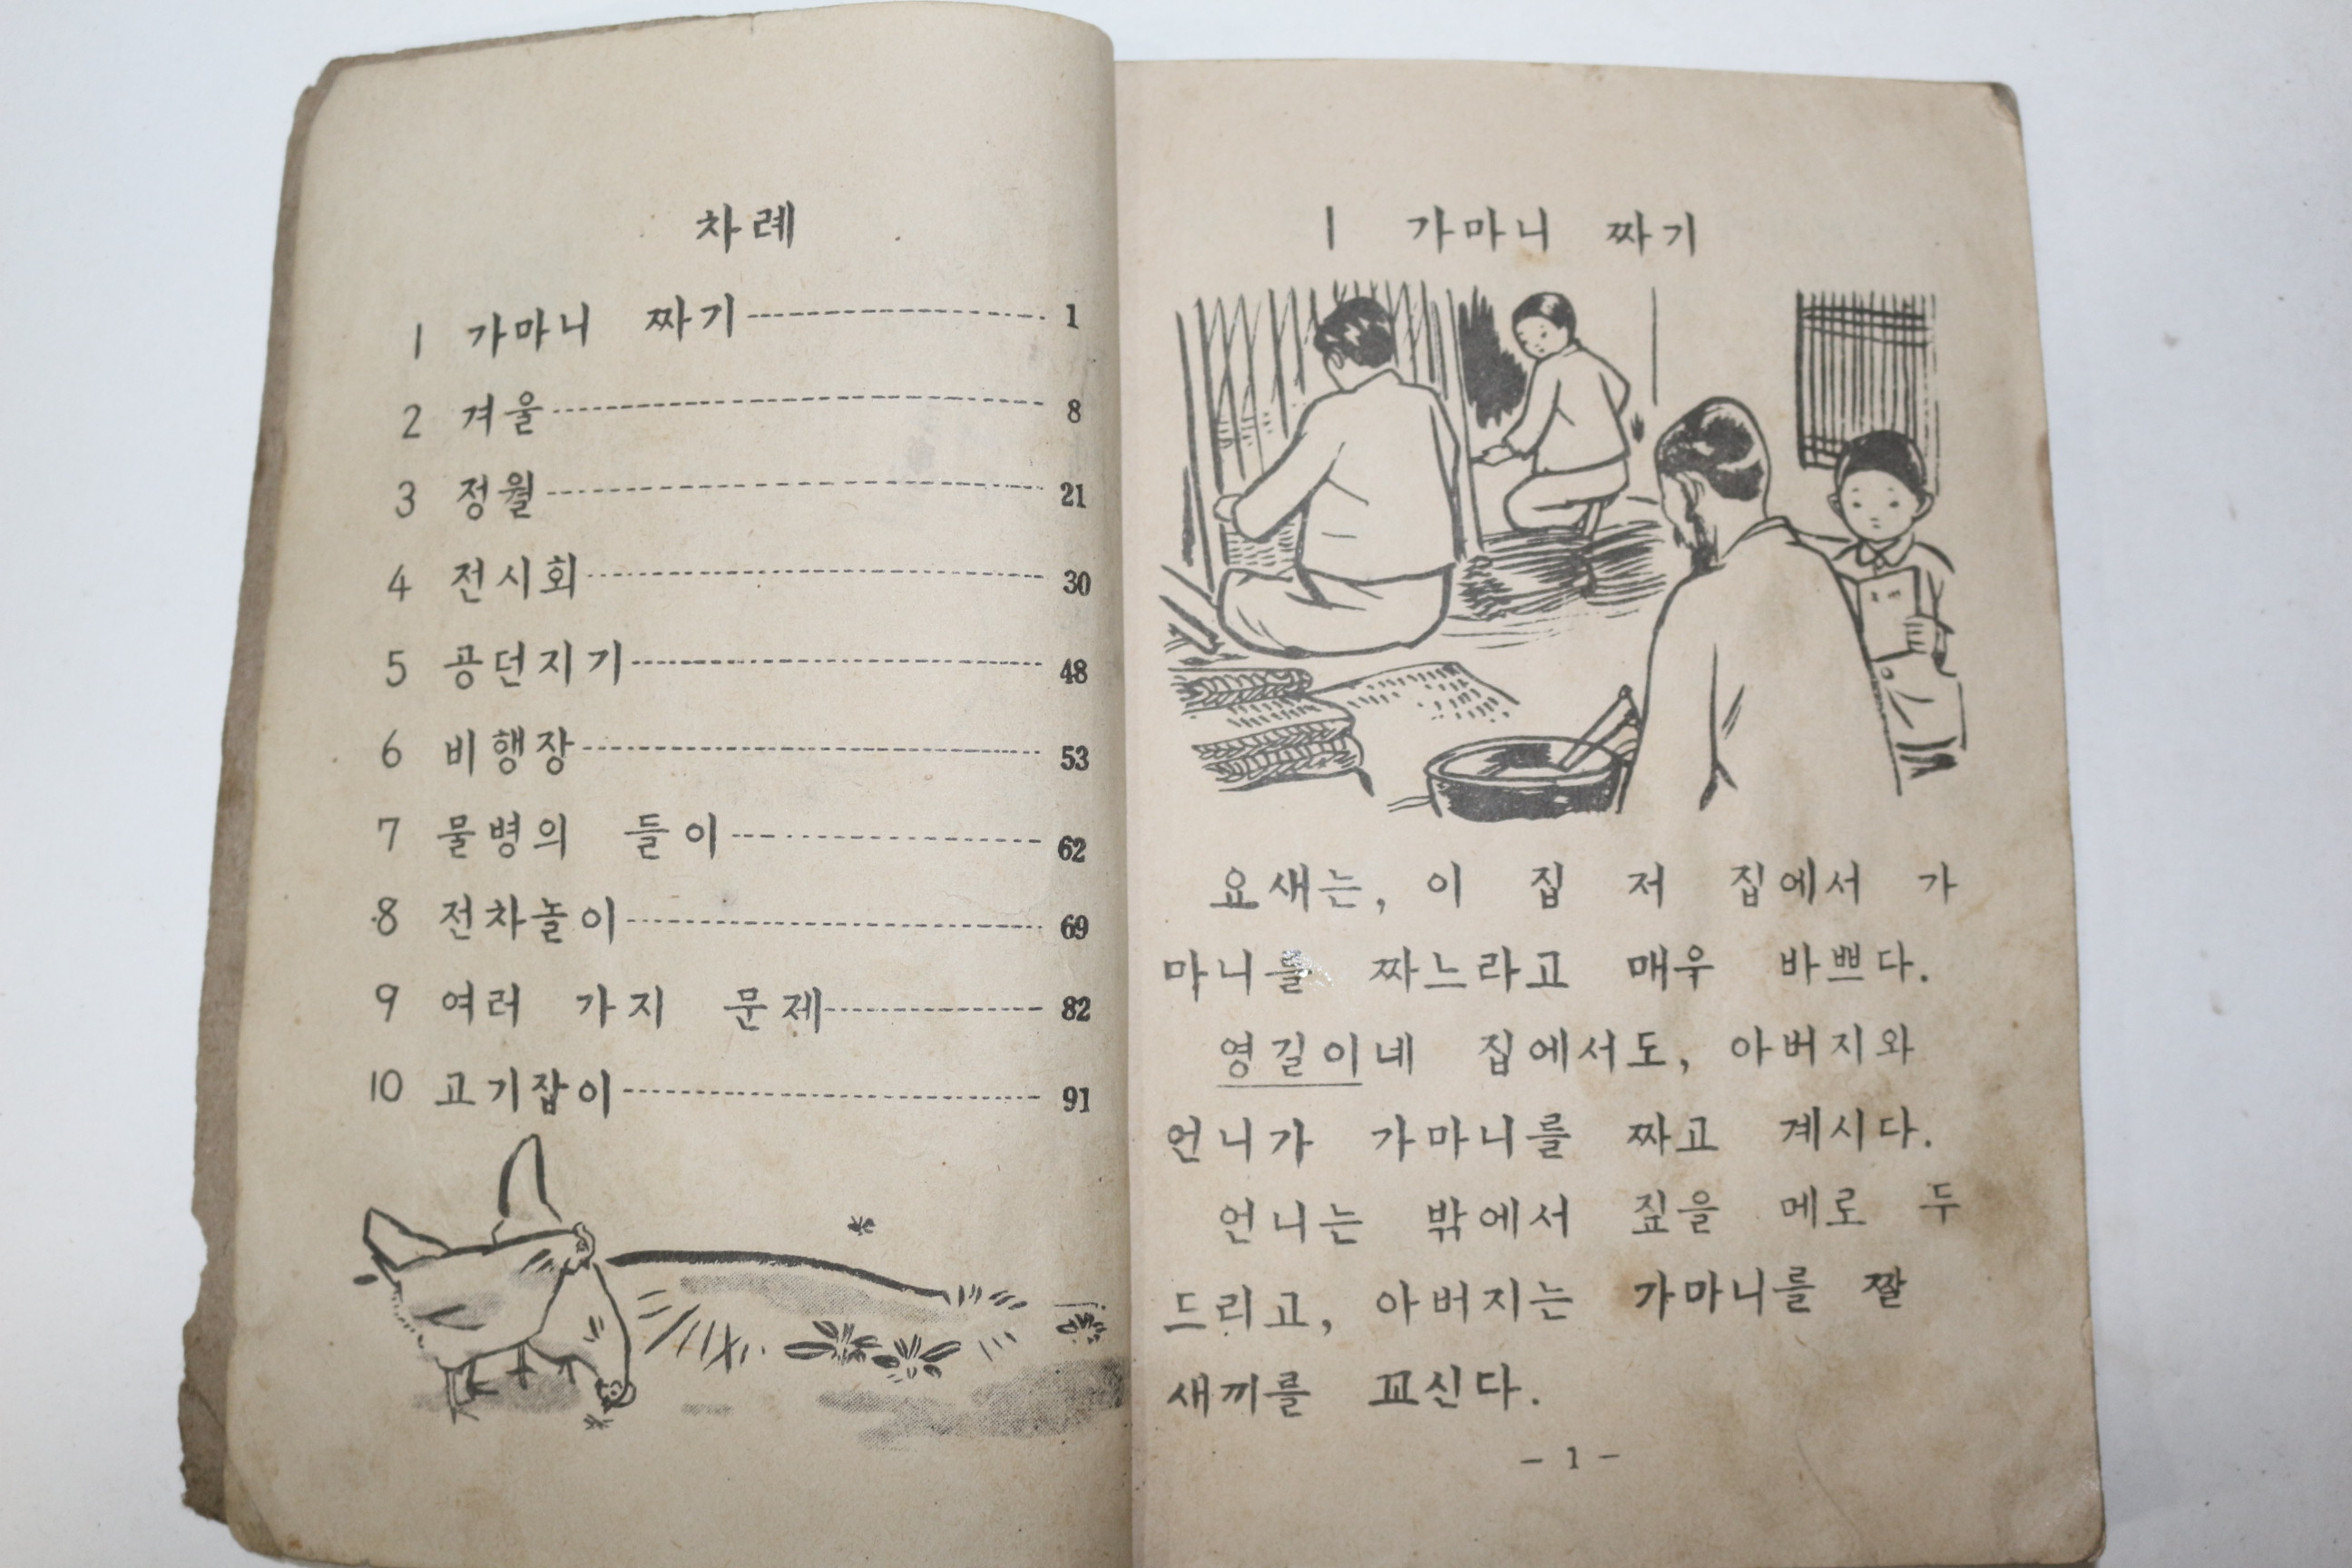 차례
1 가마니 짜기 1
2 겨울 8
3 정월 21
4 전시회 30
5 공던지기 48
6 비행장 53
7 물병의 들이 62
8 전차놀이 69
9 여러 가지 문제 82
10 고기잡이 91
1 가마니 짜기
요새는, 이 집 저 집에서 가
마니를 짜느라고 매우 바쁘다.
영길이네 집에서도, 아버지와
언니가 가마니를 짜고 계시다.
언니는 밖에서 짚을 메로 두
드리고, 아버지는 가마니를 짤
새끼를 꾜신다.
- 1 -